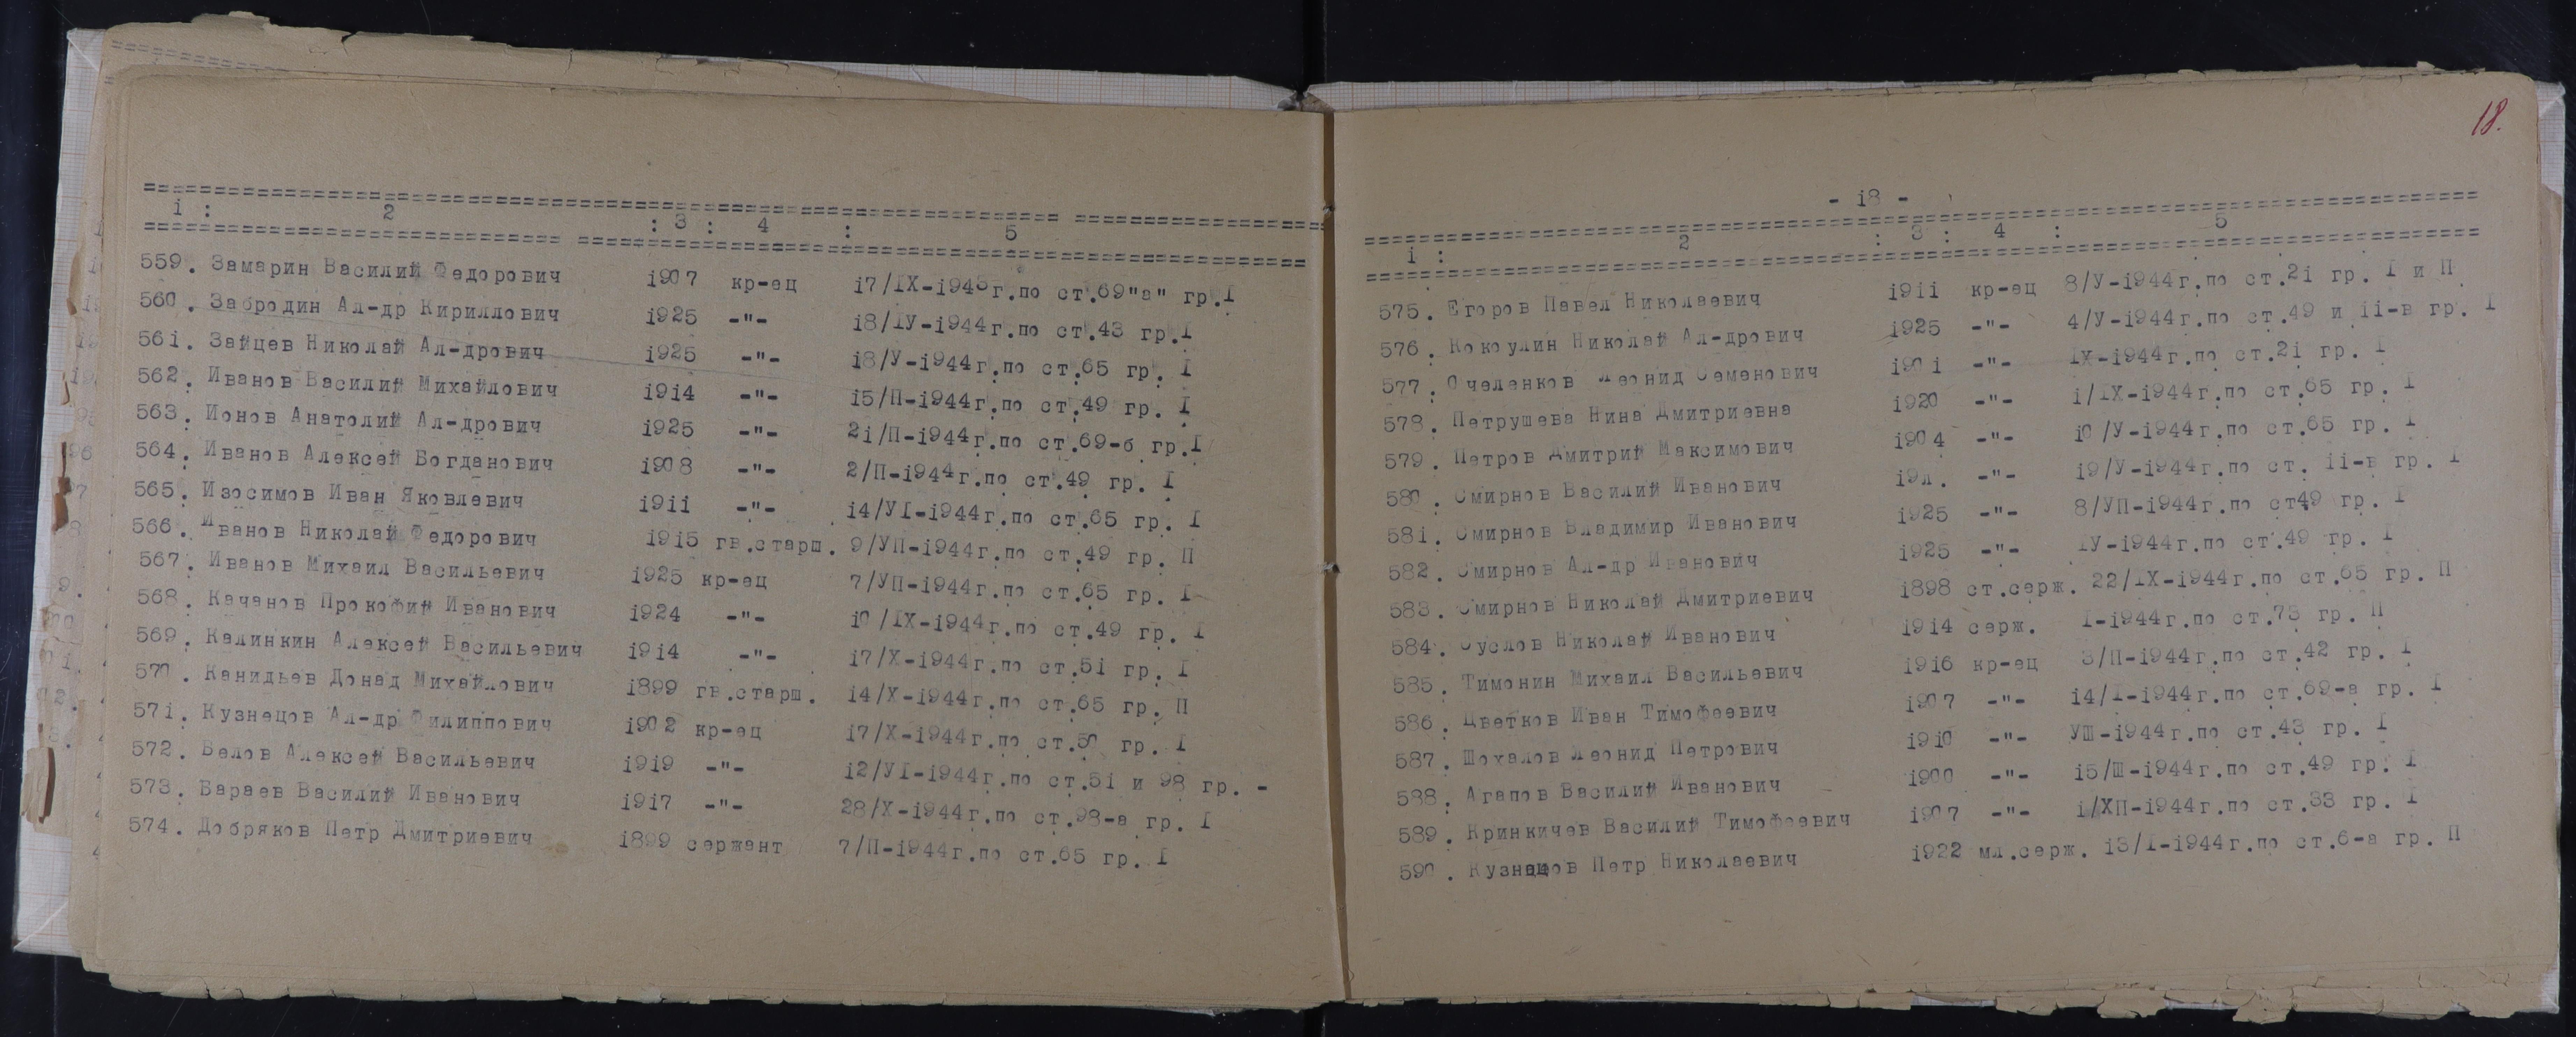 1 : 2 : 3 : 4 : 5
559. Замарин Василий Федорович 1907 кр-ец 17/IX-1943г.по ст.69"а" гр.I
560. Забродин Ал-др Кириллович 1925 -"- 18/IУ-1944г.по ст.43 гр.I
561. Зайцев Николай Ал-дрович 1925 -"- 18/У-1944г.по ст.65 гр. I
562. Иванов Василий Михайлович 1914 -"- 15/П-1944г.по ст.49 гр. I
563. Ионов Анатолий Ал-дрович 1925 -"- 21/П-1944г.по ст.69-б гр.I
564. Иванов Алексей Богданович 1908 -"- 2/П-1944г.по ст.49 гр. I
565. Изосимов Иван Яковлевич 1911 -"- 14/УI-1944г.по ст.65 гр. I
566. Иванов Николай Федорович 1915 гв.старш. 9/УП-1944г.по ст.49 гр. П
567. Иванов Михаил Васильевич 1925 кр-ец 7/УП-1944г.по ст.65 гр. I
568. Качанов Прокофий Иванович 1924 -"- 10/IX-1944г.по ст.49 гр. I
569. Калинкин Алексей Васильевич 1914 -"- 17/X-1944г.по ст.51 гр. I
570. Канидьев Донад Михайлович 1899 гв.старш. 14/X-1944г.по ст.65 гр. П
571. Кузнецов Ал-др Филиппович 1902 кр-ец 17/X-1944г.по ст.50 гр. I
572. Белов Алексей Васильевич 1919 -"- 12/УI-1944г.по ст.51 и 98 гр. -
573. Бараев Василий Иванович 1917 -"- 28/X-1944г.по ст.98-а гр. I
574. Добряков Петр Дмитриевич 1899 сержант 7/П-1944г.по ст.65 гр. I
18.
- 18 -
1 : 2 : 3 : 4 : 5
575. Егоров Павел Николаевич 1911 кр-ец 8/У-1944г.по ст.21 гр. I и П
576. Кокоулин Николай Ал-дрович 1925 -"- 4/У-1944г.по ст.49 и 11-в гр. I
577. Очеленков Леонид Семенович 1901 -"- IX-1944г.по ст.21 гр. I
578. Петрушева Нина Дмитриевна 1920 -"- 1/IX-1944г.по ст.65 гр. I
579. Петров Дмитрий Максимович 1904 -"- 10/У-1944г.по ст.65 гр. I
580. Смирнов Василий Иванович -"- 19/У-1944г.по ст. 11-в гр. I
581. Смирнов Владимир Иванович 1925 -"- 8/УП-1944г.по ст49 гр. I
582. Смирнов Ал-др Иванович 1925 -"- IУ-1944г.по ст.49 гр. I
583. Смирнов Николай Дмитриевич 1898 ст.серж. 22/IX-1944г.по ст.65 гр. П
584. Суслов Николай Иванович 1914 серж. I-1944г.по ст.73 гр. П
585. Тимонин Михаил Васильевич 1916 кр-ец 3/П-1944г.по ст.42 гр. I
586. Цветков Иван Тимофеевич 1907 -"- 14/I-1944г.по ст.69-а гр. I
587. Шохалов Леонид Петрович 1910 -"- УШ-1944г.по ст.43 гр. I
588. Агапов Василий Иванович 1900 -"- 15/Ш-1944г.по ст.49 гр. I
589. Кринкичев Василий Тимофеевич 1907 -"- 1/XП-1944г.по ст.33 гр. I
590. Кузнецов Петр Николаевич 1922 мл.серж. 13/I-1944г.по ст.6-а гр. П